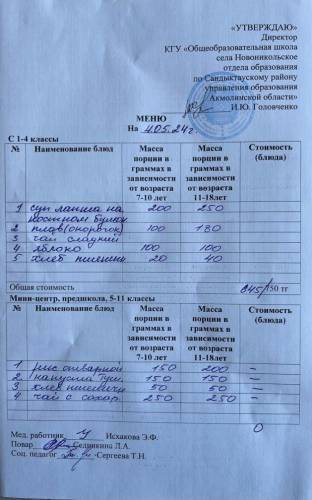 «УТВЕРЖДАЮ»
Директор
КГУ «Общеобразовательная школа
села Новоникольское
отдела образования
по Сандыктаускому району
управления образования
Акмолинской области»
И.Ю. Головченко
МЕНЮ
На 4.05.24г.
С 1-4 классы
№ Наименование блюд Масса порции в граммах в зависимости от возраста 7-10 лет Масса порции в граммах в зависимости от возраста 11-18лет Стоимость (блюда)
1 суп лапша на 200 250
2 плов(окорочок) 100 180
3 чай сладкий
4 яблоко 100 100
5 хлеб пшеничн 20 40
Общая стоимость 845/ 50 тг
Мини-центр, предшкола, 5-11 классы
№ Наименование блюд Масса порции в граммах в зависимости от возраста 7-10 лет Масса порции в граммах в зависимости от возраста 11-18лет Стоимость (блюда)
1 рис отварной 150 200 –
2 капуста туш. 150 150 –
3 хлеб пшеничн 50 50 –
4 чай с сахар. 250 250 –
0
Мед. работник Исхакова Э.Ф.
Повар Седникина Л.А.
Соц. педагог -Сергеева Т.Н.